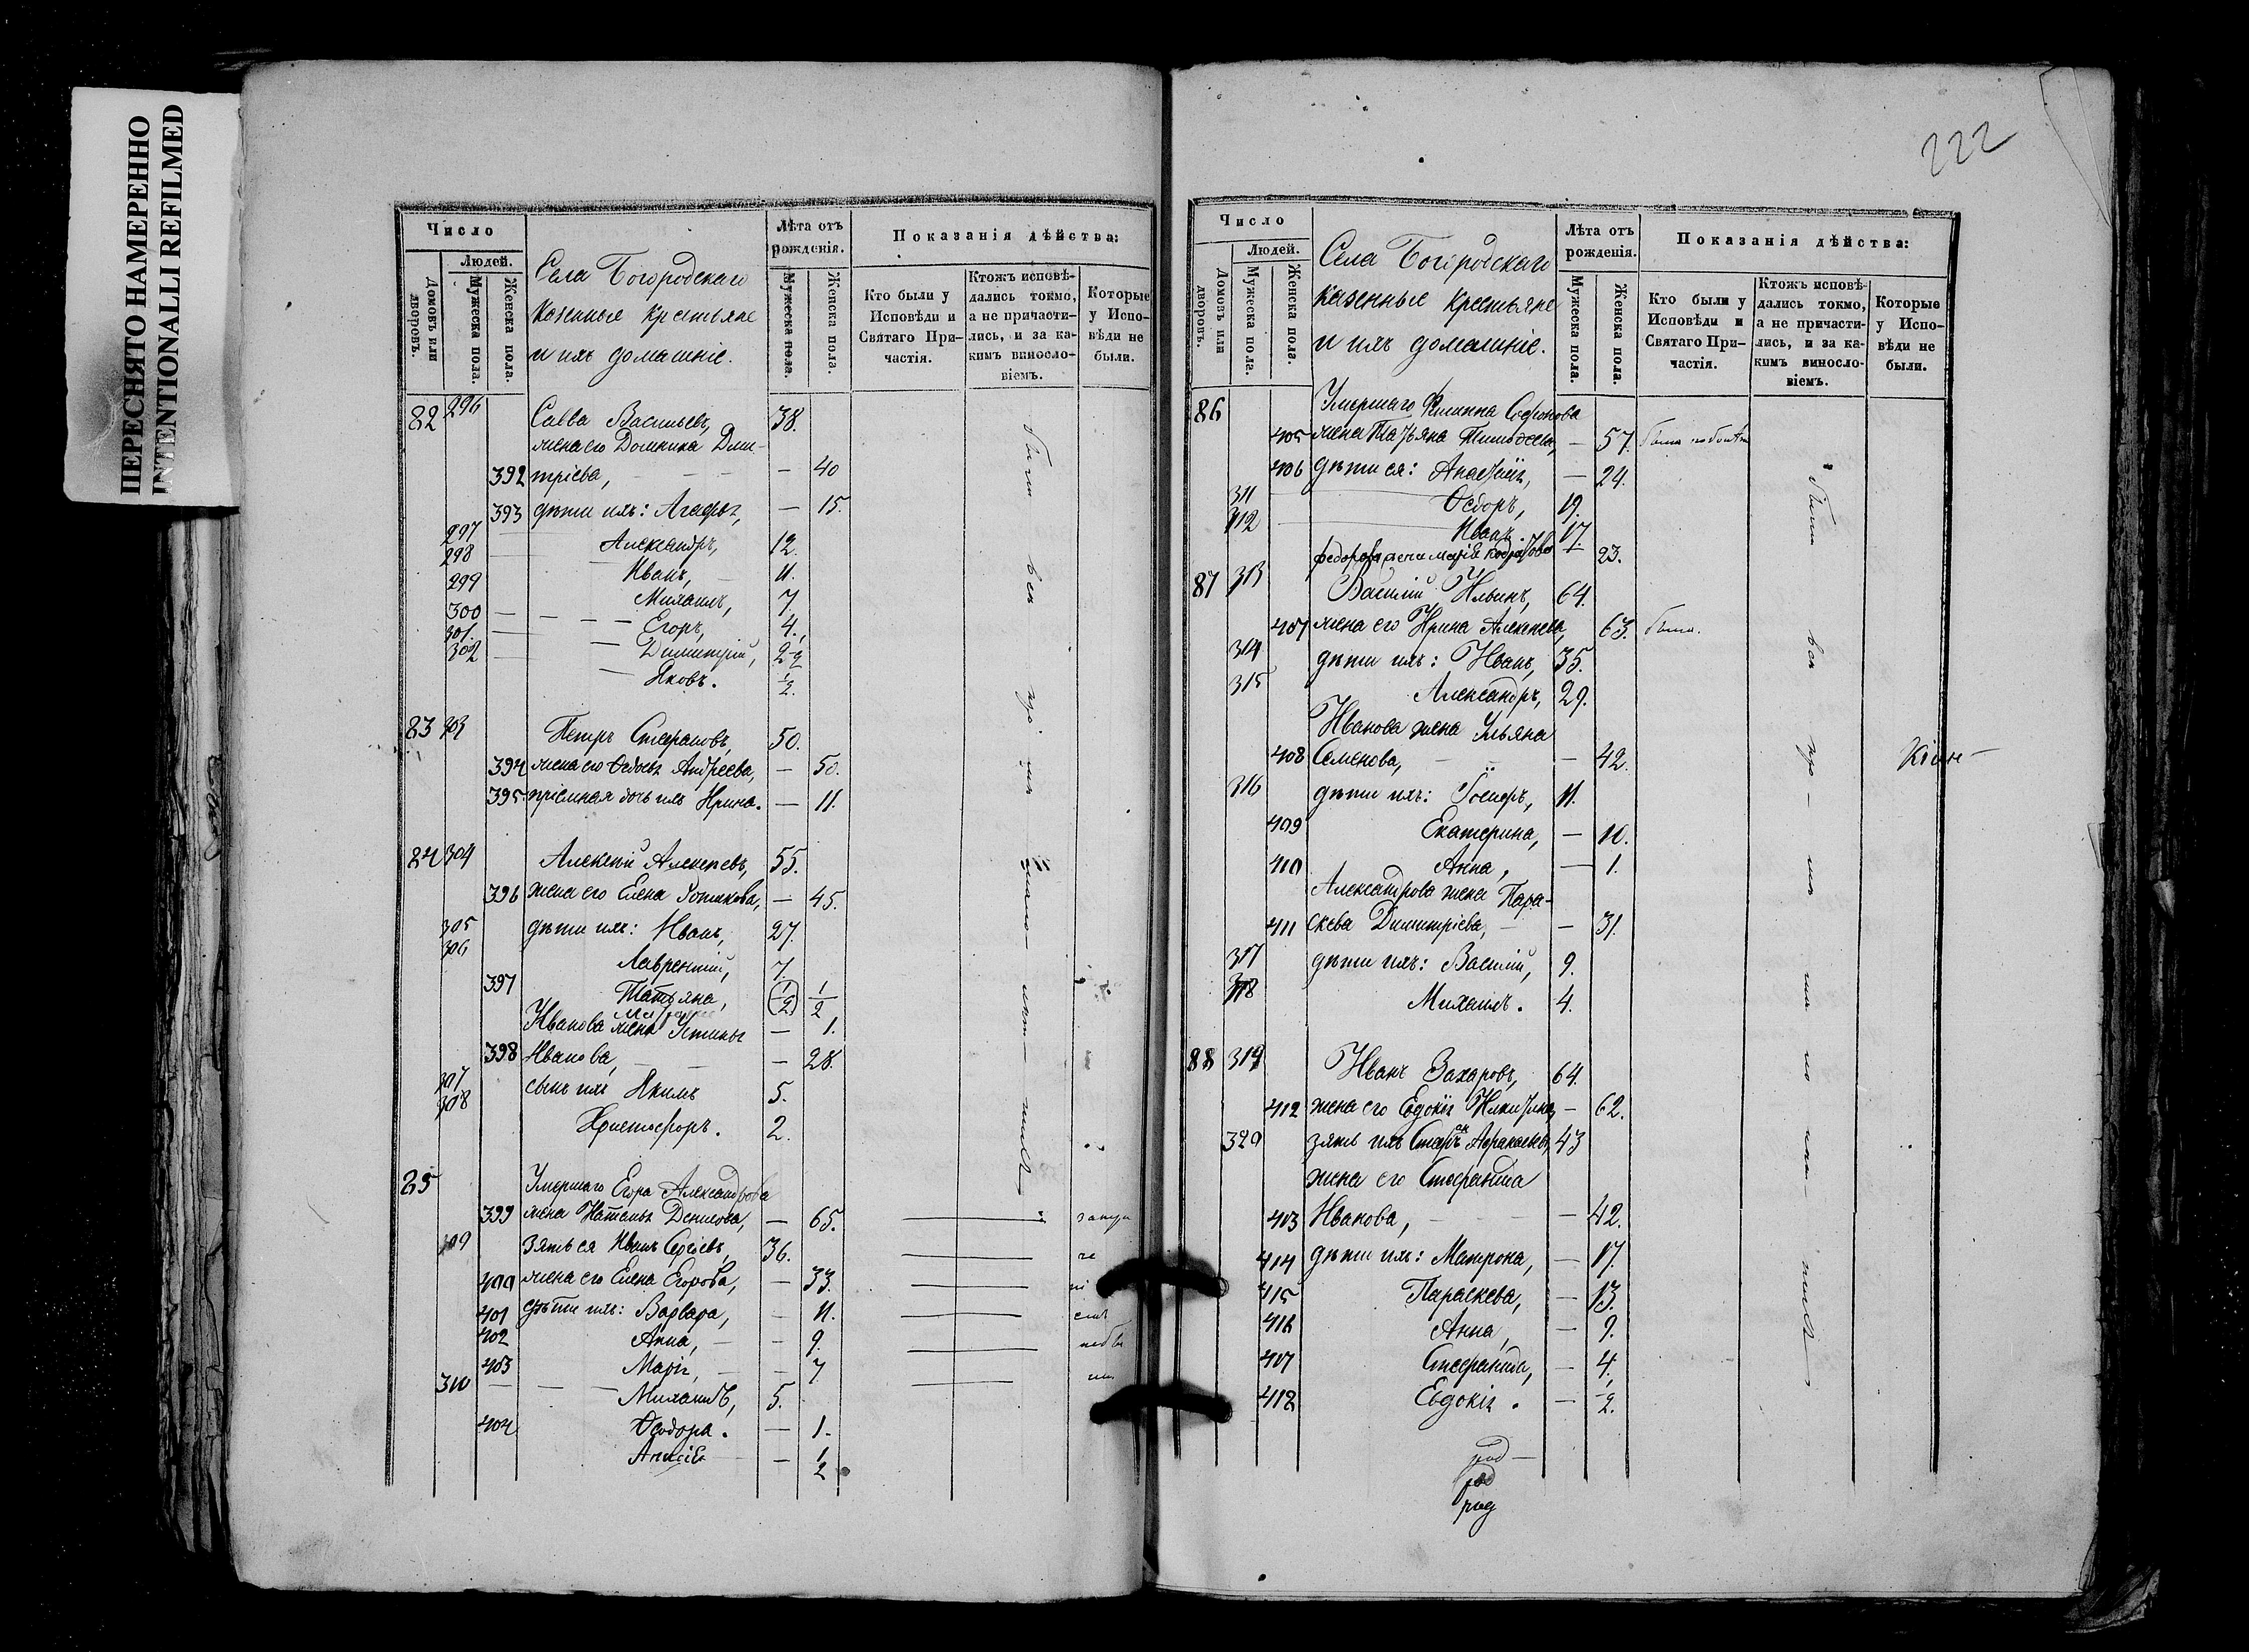 ПЕРЕСНЯТО НАМЕРЕННО
INTENTIONALLI REFILMED
Число
Людей.
Домовъ или дворовъ.
Мужеска пола.
Женска пола.
Села Богородскаго
казенные крестьяне
и ихъ домашніе.
Лѣта отъ рожденія.
Мужеска пола.
Женска пола.
Показанія дѣйства:
Кто были у Исповѣди и Святаго При-частія.
Ктожъ исповѣ-дались токмо, а не причасти-лись, и за ка-кимъ винносло-віемъ.
Которые у Испо-вѣди не были.
82 296 Савва Васильевъ, 38.
жена его Домника Дми-
392 тріева, — 40
393 дѣти ихъ: Агафья, — 15.
297 Александръ, 12.
298 Иванъ, 11.
299 Михаилъ, 7.
300 Егоръ, 4.
301. Димитрій, 2 1/2
302 Яковъ. 1/2
83 303 Петръ Стефановъ, 50.
394 жена его Ѳедосья Андреева, — 50.
395. пріемная дочь ихъ Ирина. — 11.
84 304 Алексѣй Алексѣевъ, 55.
396 жена его Елена — 45.
305 дѣти ихъ: Иванъ, 27.
306 Лаврентій, 7.
397 Татьяна, 1/2 1/2
Иванова жена Устинья — 1.
398 Иванова, — 28.
307 сынъ ихъ Якимъ 5.
308 Христофоръ. 2.
85 Умершаго Егора Александрова
399 жена Наталья Денисова, — 65.
309 Зять ея Иванъ Сергіевъ, 36.
400 жена его Елена Егорова, — 33.
401 дѣти ихъ: Варвара, — 11.
402 Анна, — 9.
403 Марія, — 7
310 Михаилъ, 5.
404 Ѳеодора. — 1.
Анисія — 1/2
222
Число
Людей.
Домовъ или дворовъ.
Мужеска пола.
Женска пола.
Села Богородскаго
казенные крестьяне
и ихъ домашніе.
Лѣта отъ рожденія.
Мужеска пола.
Женска пола.
Показанія дѣйства:
Кто были у Исповѣди и Святаго При-частія.
Ктожъ исповѣ-дались токмо, а не причасти-лись, и за ка-кимъ винносло-віемъ.
Которые у Испо-вѣди не были.
86 Умершаго Филиппа Софонова
405 жена Татьяна Тимоѳеева, — 57. была
406 дѣти ея: Анастасія, — 24.
311 Ѳедоръ, 19.
312 Иванъ. 17.
Федорова жена Марія — 23.
87 313 Василій Ильинъ, 64.
407 жена его Ирина Алексѣева, 63. была.
314 дѣти ихъ: Иванъ, 35.
315 Александръ, 29.
Иванова жена Ульяна
408 Семенова, — 42.
316 дѣти ихъ: Іосифъ, 11.
409 Екатерина, — 10.
410 Анна, — 1.
Александрова жена Пара-
411 скева Димитріева, — 31.
317 дѣти ихъ: Василій, 9.
318 Михаилъ. 4.
88 319 Иванъ Захаровъ, 64.
412 жена его Евдокія Никитина, — 62.
320 зять ихъ 43
жена его Стефанида
413 Иванова, — 42.
414 дѣти ихъ: Матрона, — 17.
415 Параскева, — 13.
416 Анна, — 9.
417 Стефанида, — 4.
418 Евдокія. — 1/2.